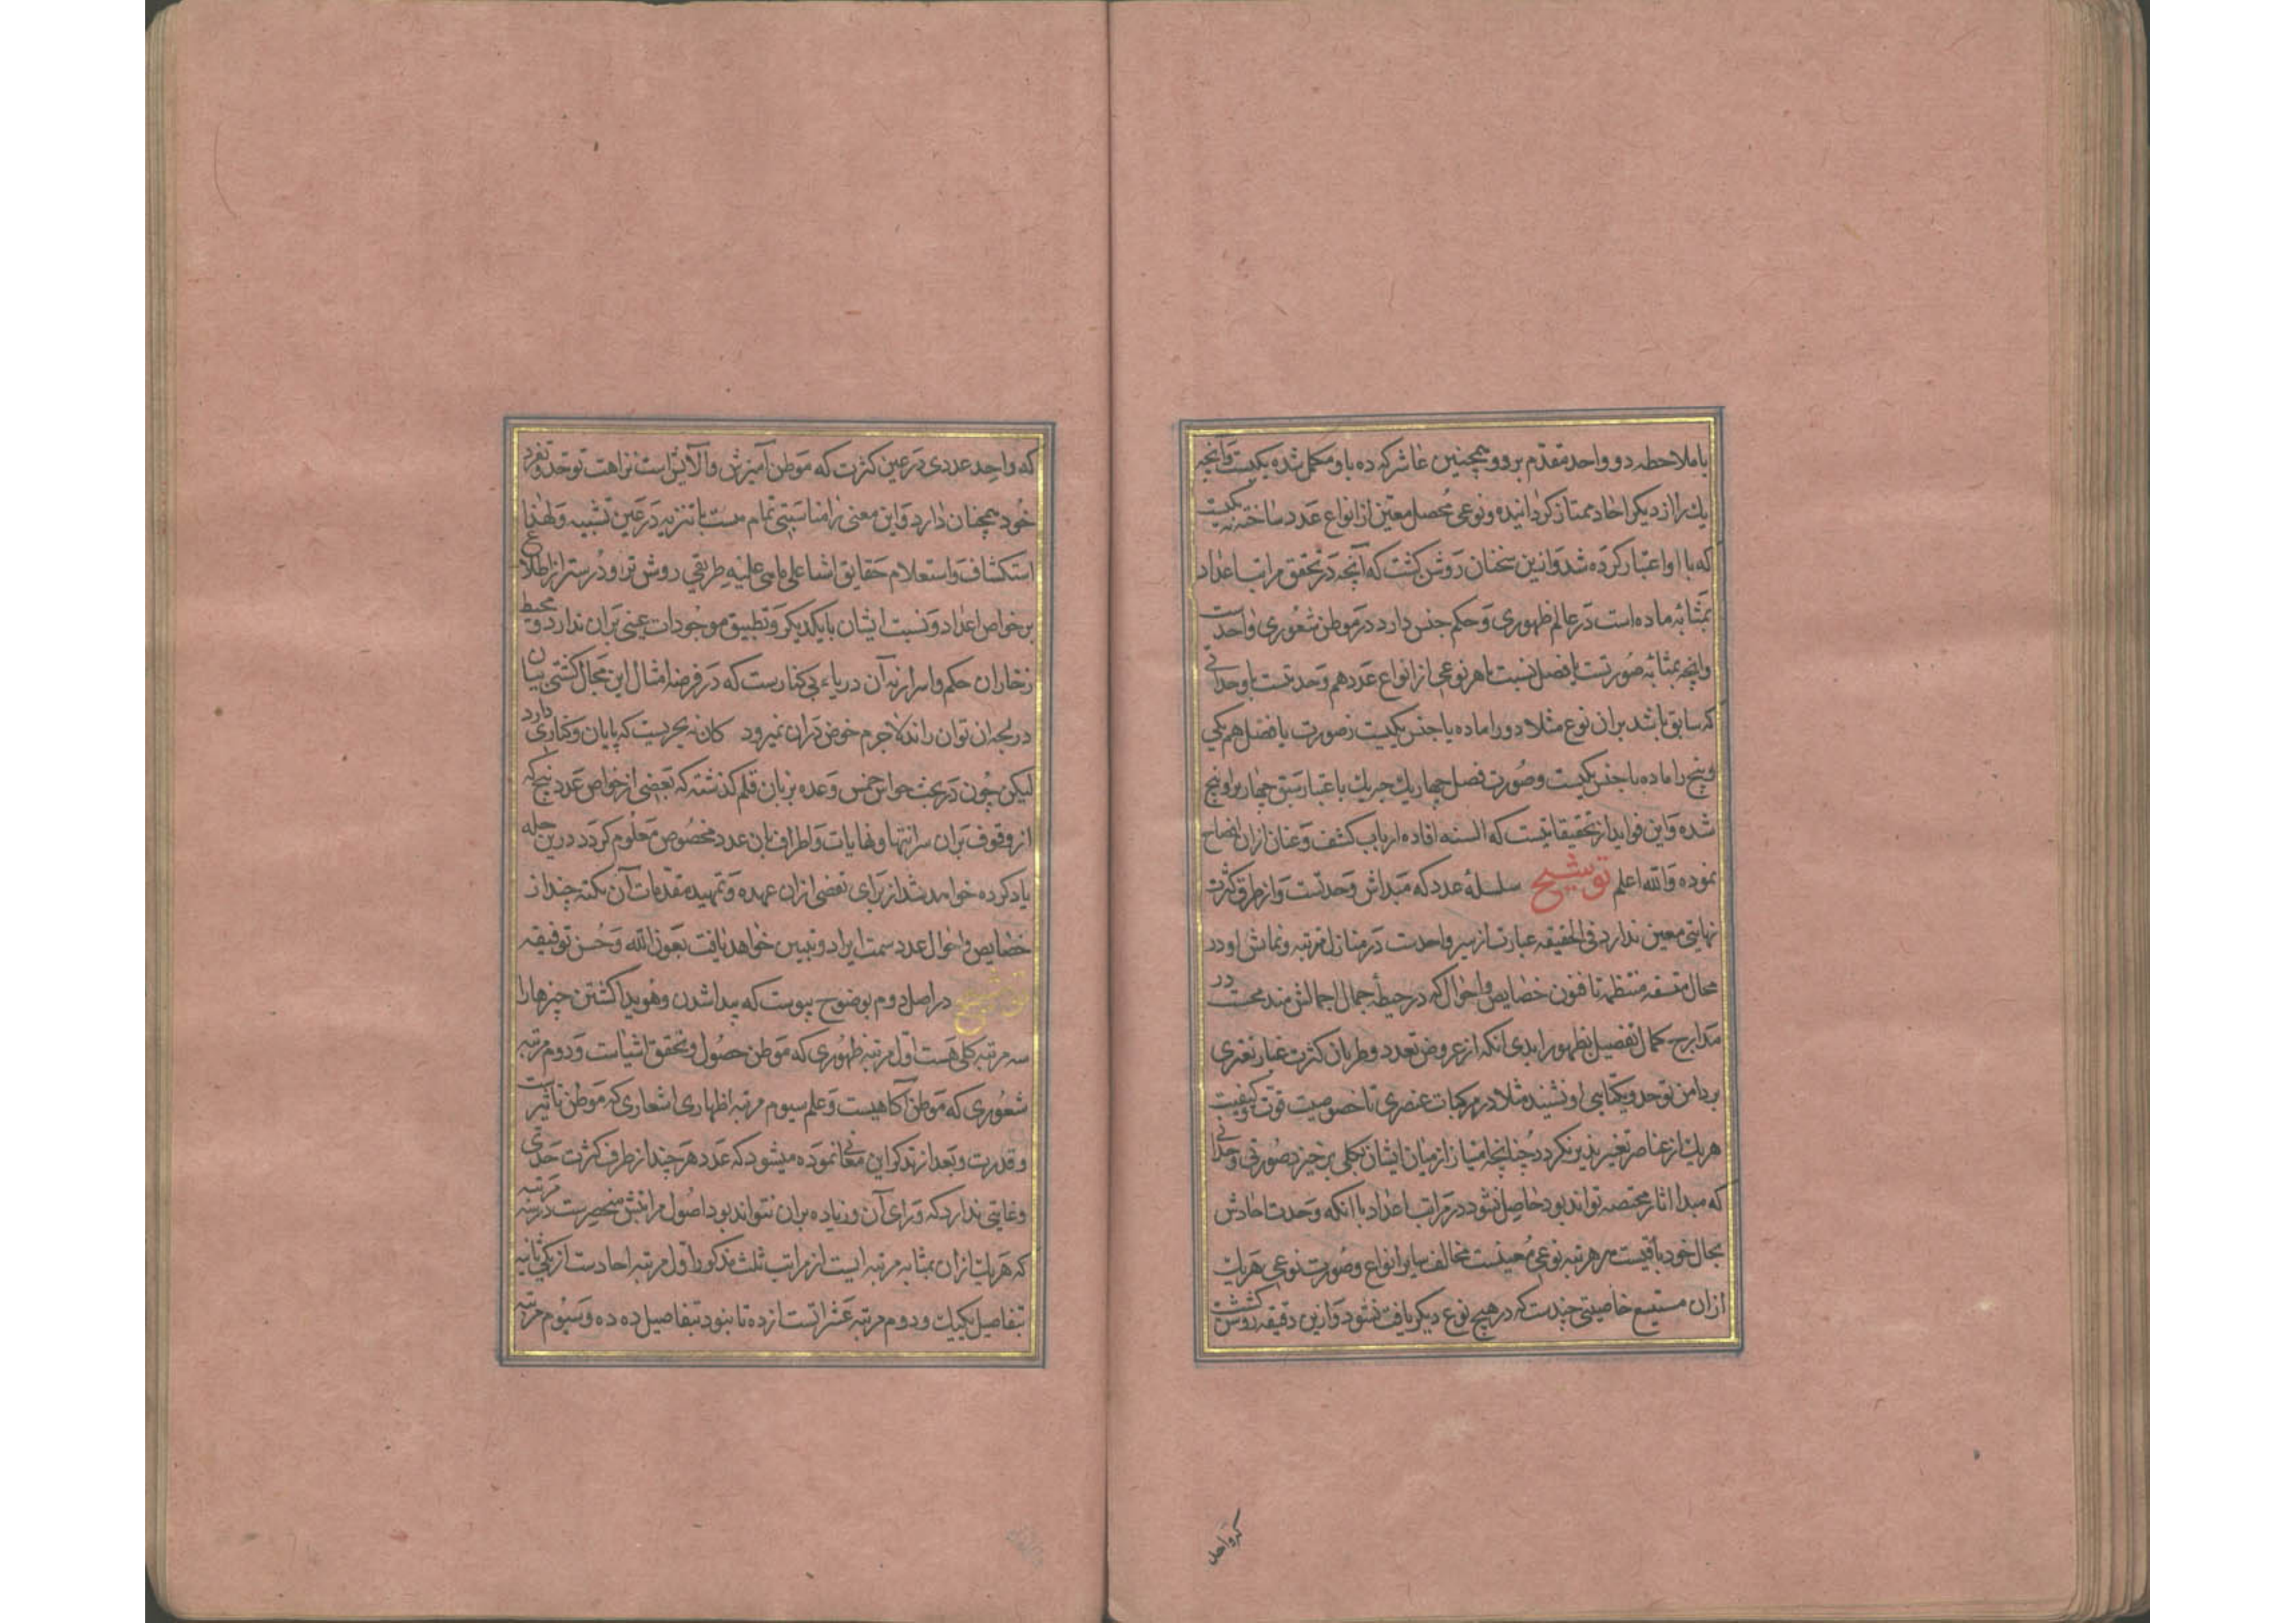 با ملاحظه دو واحد مقدم برو و همچنین عاشر که ده باو مکمل شده یکیست وانچه
یك را از دیکر احاد ممتاز کردانیده و نوعی محصل معین از انواع عدد ساخته یکیست
که با او اعتبار کرده شد و ازین سخنان روشن کشت که آنچه در تحقق مراتب اعداد
بمثابه ماده است در عالم ظهوری و حکم جنس دارد در موطن شعوری واحدست
وانچه بمثابه صورتست یا فصل نسبت با هر نوعی از انواع عدد هم وحدتست با وحداتی
که سابق باشد بران نوع مثلا دو را ماده یا جنس یکیست و صورت یا فصل هم یکی
و پنج را ماده یا جنس یکیست و صورت فصل چهار یك جریك باعتبار سبق چهار برو پنج
شده و این فواید از تحقیقاتیست که السنه افاده ارباب کشف و عنان ازان افصاح
نموده والله اعلم توشیح سلسله عدد که مبداش وحدتست و از طرق کثرت
نهایتی معین ندارد فی الحقیقه عبارت از سیر واحدست در منازل مرتبه و نمایش او در
محال متسقه منتظمه تا فنون خصایص و احوال که در حیطه جمال اجمالش مندمجست در
مدارج کمال تفصیل بظهور اید بی انکه از عروض تعدد و طریان کثرت غبار تغیری
بر دامن توحد و یکتایی او نشیند مثلا در مرکبات عنصری تا خصوصیت قوت و کیفیت
هر یك از عناصر تغیر پذیر نکردد چنانچه امتیاز از میان ایشان بکلی برخیزد صورتی وحدانی
که مبدا اثار مختصه تواند بود حاصل نشود در مراتب اعداد با انکه وحدت احادش
بحال خود باقیست هر مرتبه نوعی معینست مخالف سایر انواع و صورت نوعی هر یك
ازان مستتبع خاصیتی چندست که در هیچ نوع دیکر یافت نشود و ازین دقیقه روشن کشت
که واحد
که واحد عددی در عین کثرت که موطن آمیزش و آلایش است نزاهت توحد و تفرد
خود همچنان دارد و این معنی را مناسبتی تمام هست با تنزیه در عین تشبیه و لهذا
استکشاف و استعلام حقایق اشیا علی ماهی علیه طریقی روشن تر و درستر از اطلاع
بر خواص اعداد و نسبت ایشان با یکدیکر و تطبیق موجودات عینی بران ندارد و محیط
زخاران حکم و اسرار نه آن دریاء بی کنارست که در فرضه امثال این مجال کشتی بیان
در لجه ان توان راند لاجرم خوض دران نمیرود کانه بحریست که پایان و کناری دارد
لیکن چون در بحث حواس خمس وعده بزبان قلم کذشته که بعضی از خواص عدد پنج که
از وقوف بران سر انتها و نهایات و اطراف بان عدد مخصوص معلوم کردد درین جمله
یاد کرده خواهد شد از برای تفصی ازان عهده و تمهید مقدمات آن نکته چند از
خصایص و احوال عدد سمت ایراد و تبیین خواهد یافت بعون الله و حسن توفیقه
توشیح در اصل دوم بوضوح پیوست که پیدا شدن و هویدا کشتن چیزها را
سه مرتبه کلی هست اول مرتبه ظهوری که موطن حصول و تحقق اشیاست و دوم مرتبه
شعوری که موطن آکاهیست و علم سیوم مرتبه اظهاری اشعاری که موطن تاثیرست
و قدرت و بعد از تذکر این معانی نموده میشود که عدد هر چند از طرف کثرت حدی
و غایتی ندارد که ورای آن و زیاده بران نتواند بود اصول مراتبش منحصرست در سه مرتبه
که هر یك ازان بمثابه مرتبه ایست از مراتب ثلث مذکور اول مرتبه احادست از یکی تا نه
بتفاصیل یکیك و دوم مرتبه عشراتست از ده تا نبود بتفاصیل ده ده و سیوم مرتبه